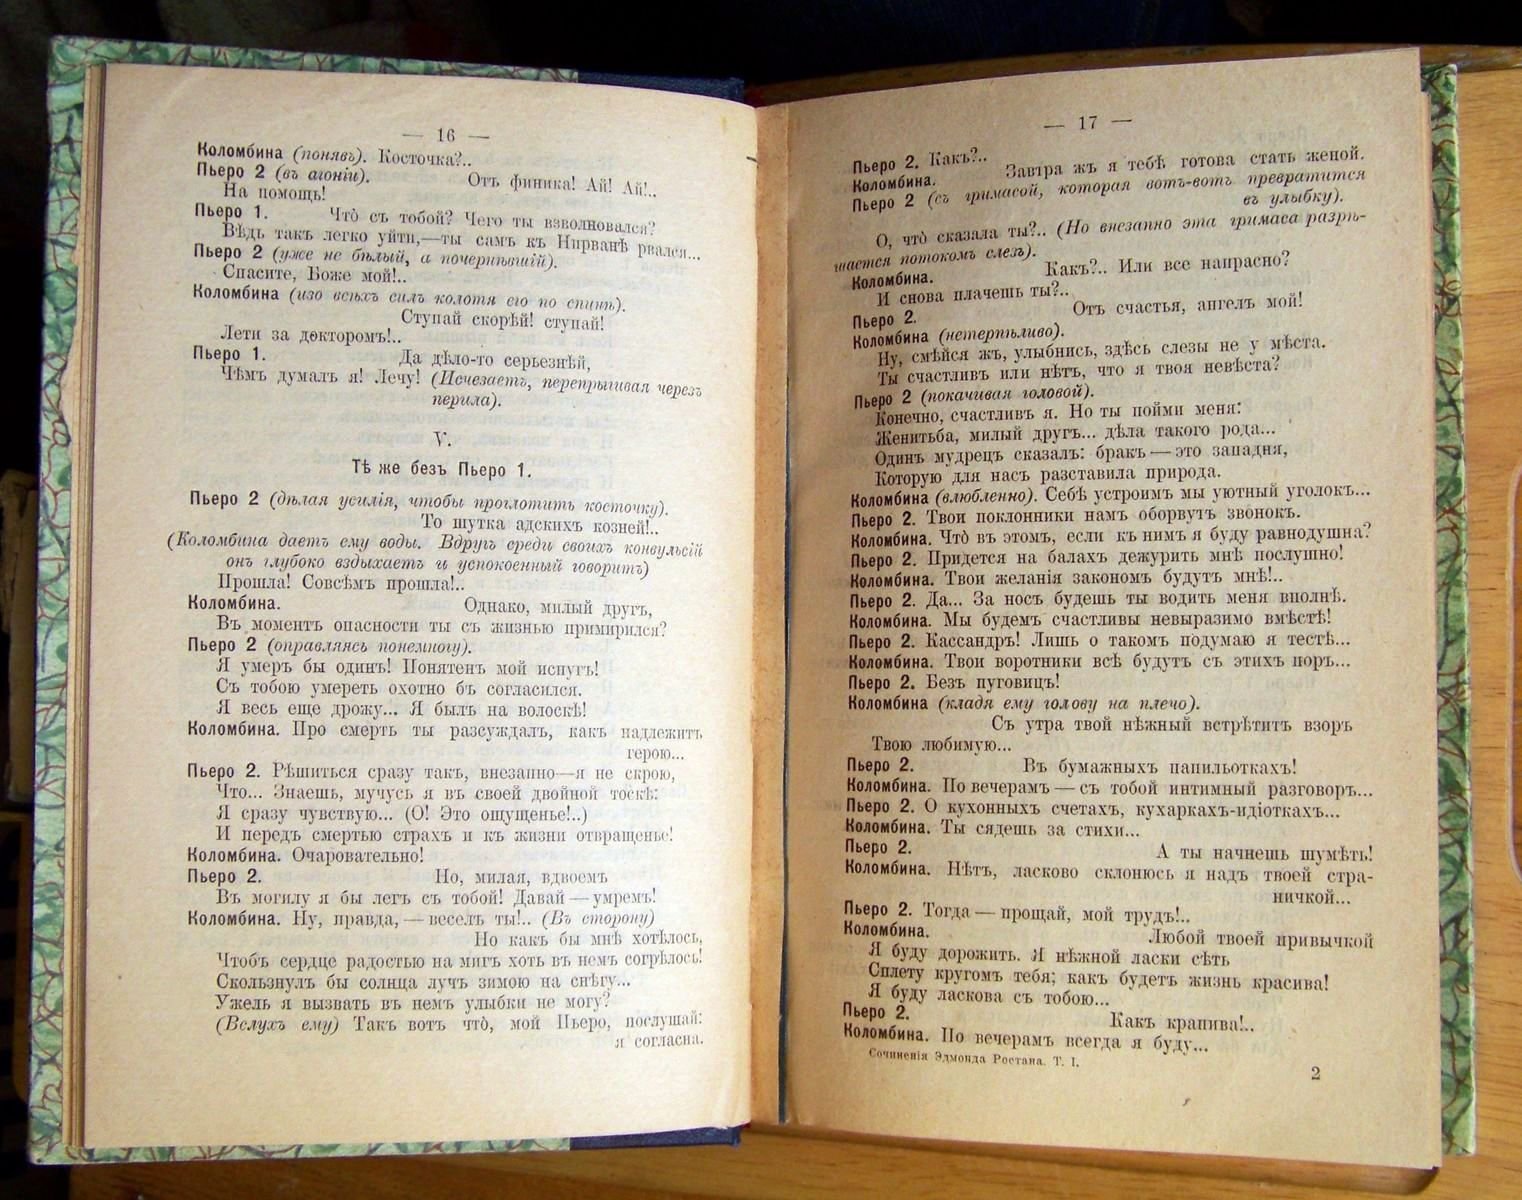 — 16 —
Коломбина (понявъ). Косточка?..
Пьеро 2 (въ агоніи). Отъ финика! Ай! Ай!..
На помощь!
Пьеро 1. Что̀ съ тобой? Чего ты взволновался?
Вѣдь такъ легко уйти,—ты самъ къ Нирванѣ рвался...
Пьеро 2 (уже не бѣлый, а почернѣвшій).
Спасите, Боже мой!..
Коломбина (изо всѣхъ силъ колотя его по спинѣ).
Ступай скорѣй! ступай!
Лети за докторомъ!..
Пьеро 1. Да дѣло-то серьезнѣй,
Чѣмъ думалъ я! Лечу! (Исчезаетъ, перепрыгивая черезъ
перила).
V.
Тѣ же безъ Пьеро 1.
Пьеро 2 (дѣлая усилія, чтобы проглотить косточку).
То шутка адскихъ козней!..
(Коломбина даетъ ему воды. Вдругъ среди своихъ конвульсій
онъ глубоко вздыхаетъ и успокоенный говоритъ)
Прошла! Совсѣмъ прошла!..
Коломбина. Однако, милый другъ,
Въ моментъ опасности ты съ жизнью примирился?
Пьеро 2 (оправляясь понемногу).
Я умеръ бы одинъ! Понятенъ мой испугъ!
Съ тобою умереть охотно бъ согласился.
Я весь еще дрожу... Я былъ на волоскѣ!
Коломбина. Про смерть ты разсуждалъ, какъ надлежитъ
герою...
Пьеро 2. Рѣшиться сразу такъ, внезапно—я не скрою,
Что... Знаешь, мучусь я въ своей двойной тоскѣ:
Я сразу чувствую... (О! Это ощущенье!..)
И передъ смертью страхъ и къ жизни отвращенье!
Коломбина. Очаровательно!
Пьеро 2. Но, милая, вдвоемъ
Въ могилу я бы легъ съ тобой! Давай — умремъ!
Коломбина. Ну, правда, — веселъ ты!.. (Въ сторону)
Но какъ бы мнѣ хотѣлось,
Чтобъ сердце радостью на мигъ хоть въ немъ согрѣлось!
Скользнулъ бы солнца лучъ зимою на снѣгу...
Ужель я вызвать въ немъ улыбки не могу?
(Вслухъ ему) Такъ вотъ что̀, мой Пьеро, послушай:
я согласна.
— 17 —
Пьеро 2. Какъ?..
Коломбина. Завтра жъ я тебѣ готова стать женой.
Пьеро 2 (съ гримасой, которая вотъ-вотъ превратится
въ улыбку).
О, что̀ сказала ты?.. (Но внезапно эта гримаса разрѣ-
шается потокомъ слезъ).
Коломбина. Какъ?.. Или все напрасно?
И снова плачешь ты?..
Пьеро 2. Отъ счастья, ангелъ мой!
Коломбина (нетерпѣливо).
Ну, смѣйся жъ, улыбнись, здѣсь слезы не у мѣста.
Ты счастливъ или нѣтъ, что я твоя невѣста?
Пьеро 2 (покачивая головой).
Конечно, счастливъ я. Но ты пойми меня:
Женитьба, милый другъ... дѣла такого рода...
Одинъ мудрецъ сказалъ: бракъ — это западня,
Которую для насъ разставила природа.
Коломбина (влюбленно). Себѣ устроимъ мы уютный уголокъ...
Пьеро 2. Твои поклонники намъ оборвутъ звонокъ.
Коломбина. Что̀ въ этомъ, если къ нимъ я буду равнодушна?
Пьеро 2. Придется на балахъ дежурить мнѣ послушно!
Коломбина. Твои желанія закономъ будутъ мнѣ!..
Пьеро 2. Да... За носъ будешь ты водить меня вполнѣ.
Коломбина. Мы будемъ счастливы невыразимо вмѣстѣ!
Пьеро 2. Кассандръ! Лишь о такомъ подумаю я тестѣ...
Коломбина. Твои воротники всѣ будутъ съ этихъ поръ...
Пьеро 2. Безъ пуговицъ!
Коломбина (кладя ему голову на плечо).
Съ утра твой нѣжный встрѣтитъ взоръ
Твою любимую...
Пьеро 2. Въ бумажныхъ папильоткахъ!
Коломбина. По вечерамъ — съ тобой интимный разговоръ...
Пьеро 2. О кухонныхъ счетахъ, кухаркахъ-идіоткахъ...
Коломбина. Ты сядешь за стихи...
Пьеро 2. А ты начнешь шумѣть!
Коломбина. Нѣтъ, ласково склонюсь я надъ твоей стра-
ничкой...
Пьеро 2. Тогда — прощай, мой трудъ!..
Коломбина. Любой твоей привычкой
Я буду дорожить. Я нѣжной ласки сѣть
Сплету кругомъ тебя; какъ будетъ жизнь красива!
Я буду ласкова съ тобою...
Пьеро 2. Какъ крапива!..
Коломбина. По вечерамъ всегда я буду...
Сочиненія Эдмонда Ростана. Т. I.
2